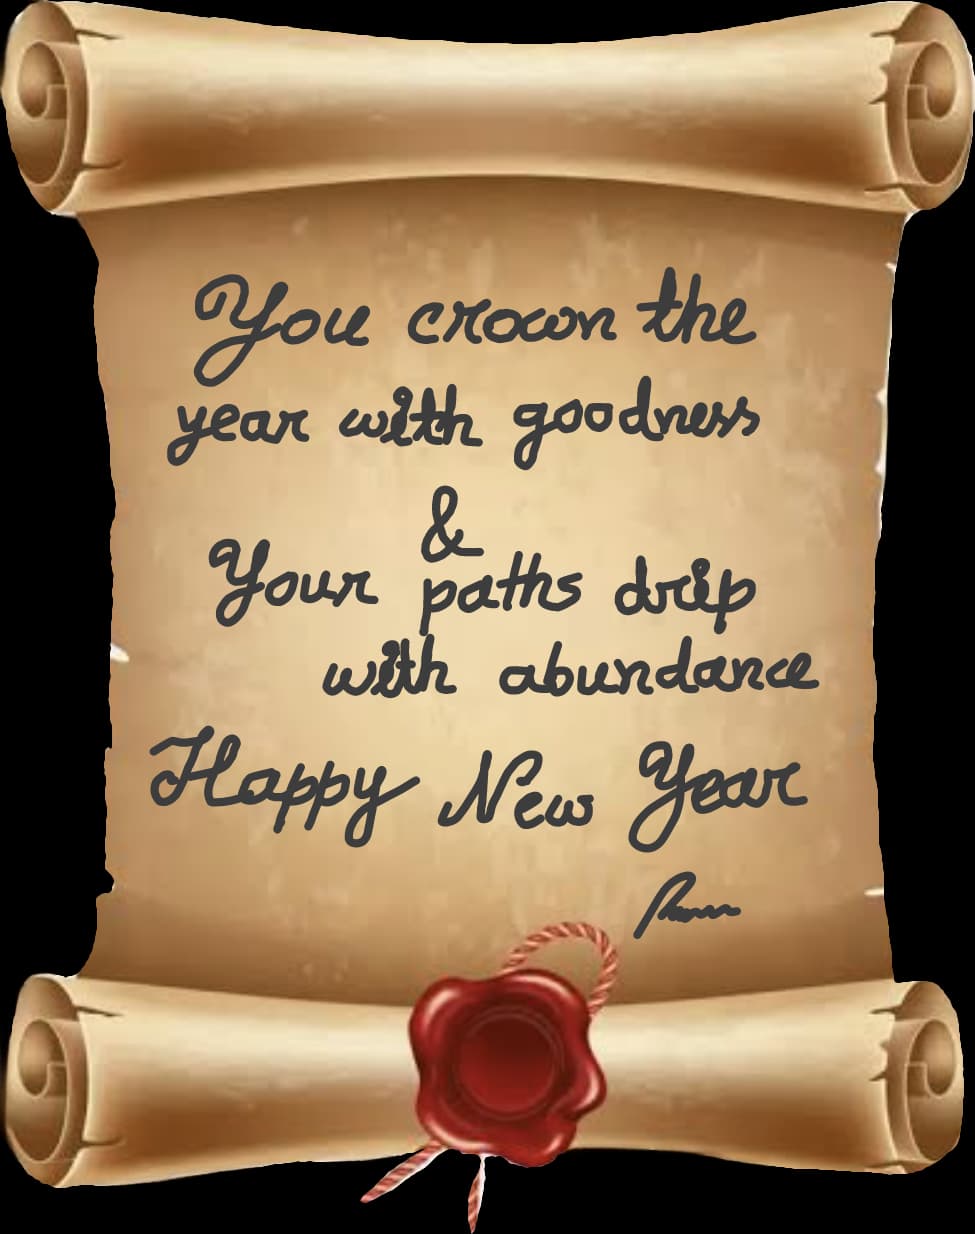 You crown the
year with goodness
&
Your paths drip
with abundance
Happy New Year